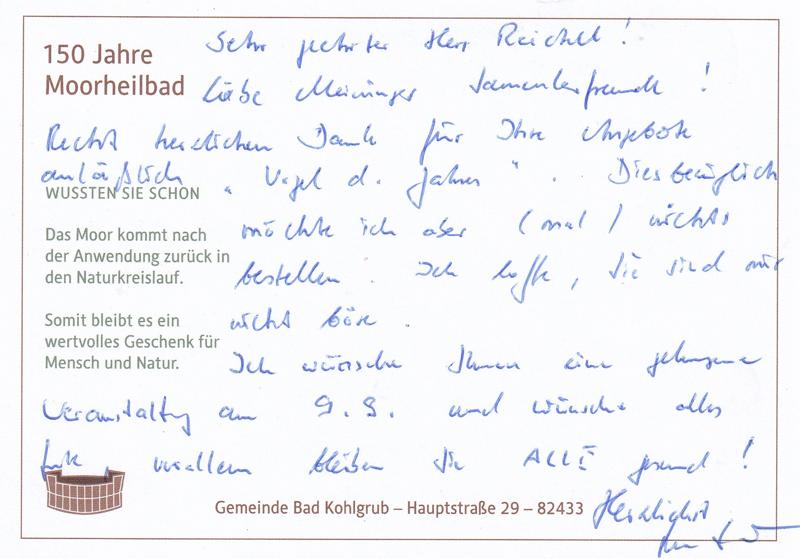 150 Jahre
Moorheilbad
Sehr geehrter Herr Reichel!
Liebe Meininger Sammlerfreunde!
Recht herzlichen Dank für Ihre Angebote
anläßlich "Vogel d. Jahres". Diesbezüglich
möchte ich aber (mal) nichts
bestellen. Ich hoffe, Sie sind mir
nicht böse.
Ich wünsche Ihnen eine gelungene
Veranstaltg am 9.9. und wünsche alles
Gute, vorallem bleiben Sie ALLE gesund!
Herzlichst
WUSSTEN SIE SCHON
Das Moor kommt nach
der Anwendung zurück in
den Naturkreislauf.
Somit bleibt es ein
wertvolles Geschenk für
Mensch und Natur.
Gemeinde Bad Kohlgrub – Hauptstraße 29 – 82433